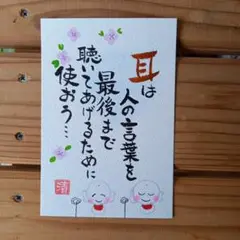 耳は
人の言葉を
最後まで
聴いてあげるために
使おう…
清